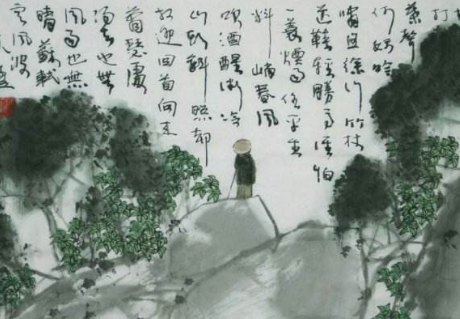 打
葉聲
何妨吟
嘯且徐行竹杖
芒鞋輕勝馬誰怕
一蓑煙雨任平生
料峭春風
吹酒醒微冷
山頭斜照却
相迎回首向来
蕭瑟處
也無
風雨也無
晴蘇軾
定風波